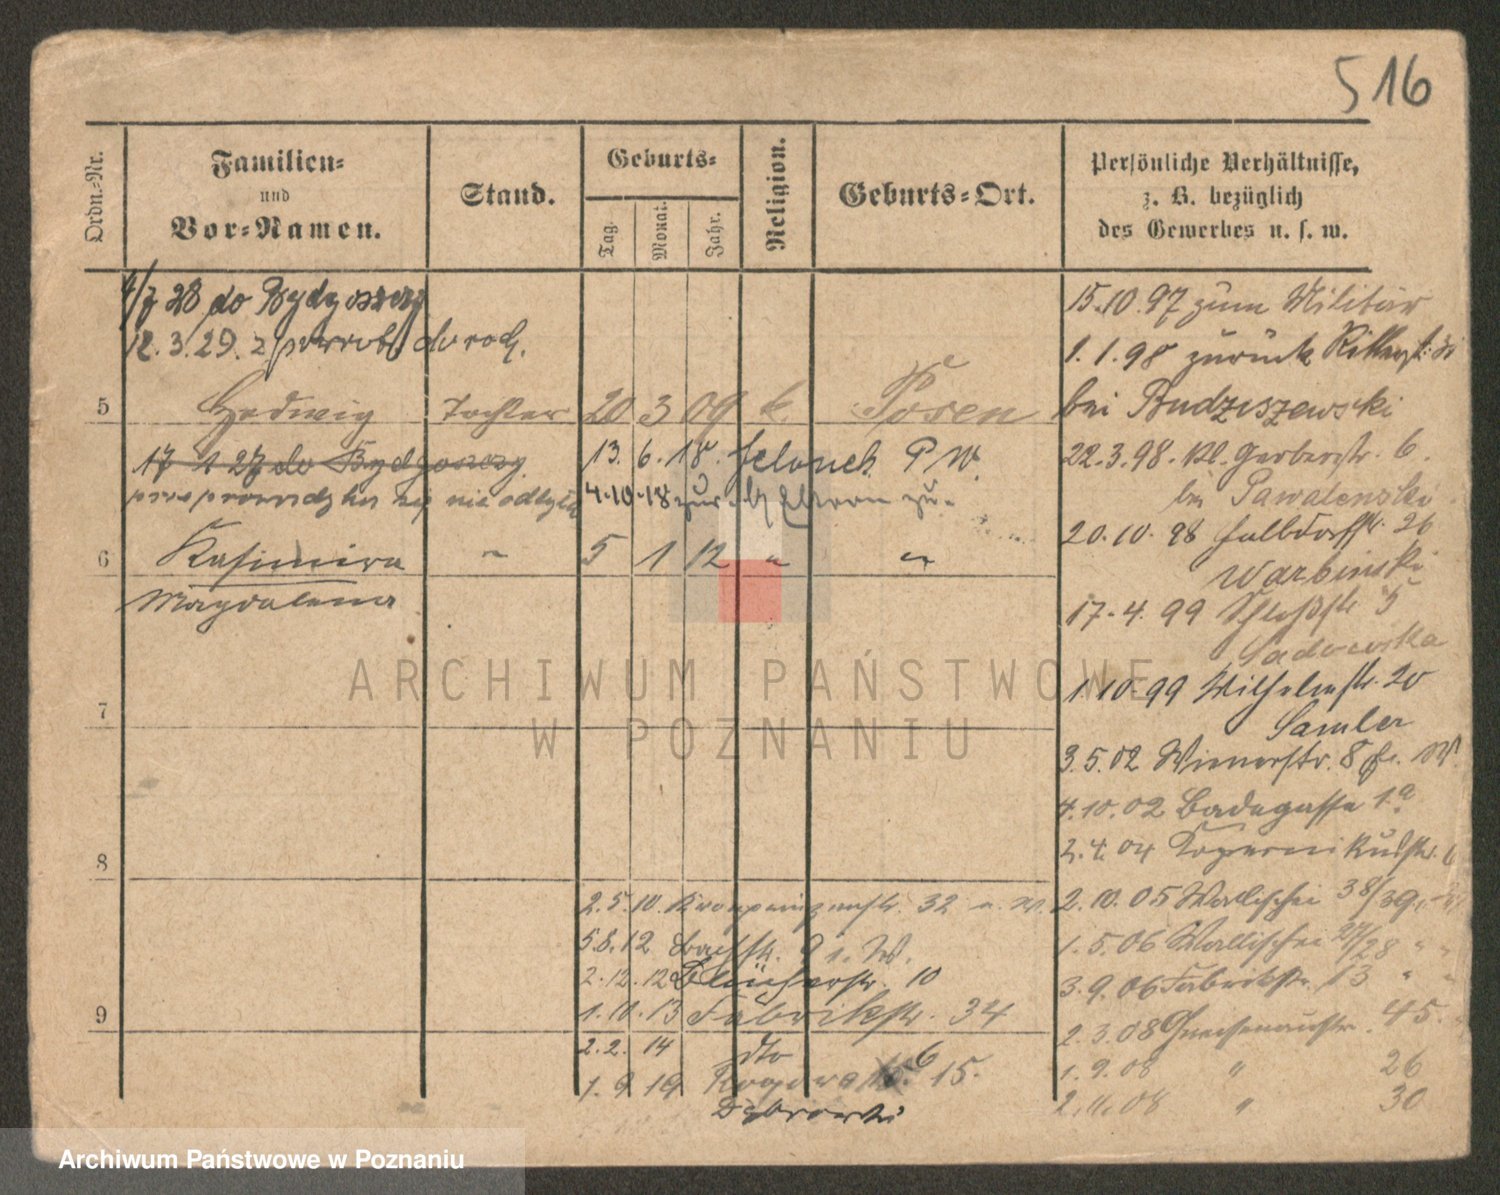 516
Ordn.-Nr.
Familien-
und
Vor-Namen.
Stand.
Geburts-
Tag.
Monat.
Jahr.
Religion.
Geburts-Ort.
Persönliche Verhältnisse,
z. B. bezüglich
des Gewerbes u. s. w.
28 do Bydgoszczy
12.3.29. z powrotem do rodz.
5 Hedwig Tochter 20 3 09 k. Posen
17 1 27 do Bydgoszczy
nie odbyła
13. 6. 18. P W.
4.10.18 zur. b/ Eltern zu.
6 Kasimira 5 1 12 " "
Magdalena
7
8
9
2.5.10 Kronprinzenstr. 32
5.8.12 9 i. W.
2.12.12 Blücherstr. 10
1.10.13 Fabrikstr. 34
2.2. 14 dto 6
1. 9 19 15.
Dąbrowski
15.10.97 zum Militär
1.1.98 zurück Ritterstr.
bei Budziszewski
22.3.98. Kl. Gerberstr. 6.
bei Pawalenski
20.10.98 Halbdorfstr. 26
Warbinski
17.4.99 Schloßstr 5
Sadowska
1.10.99 Wilhelmstr. 20
Samler
3.5.02 Wienerstr. 8
4.10.02 Badegasse 1a
2.4.04 Kopernikusstr.
2.10.05 Wallischei 38/39
1.5.06 Wallischei 27/28 " "
3.9.06 Fabrikstr. 13 " "
2.3.08 Gneisenaustr. 45.
1.9.08 " 26
2.11.08 " 30
ARCHIWUM PAŃSTWOWE
W POZNANIU
Archiwum Państwowe w Poznaniu